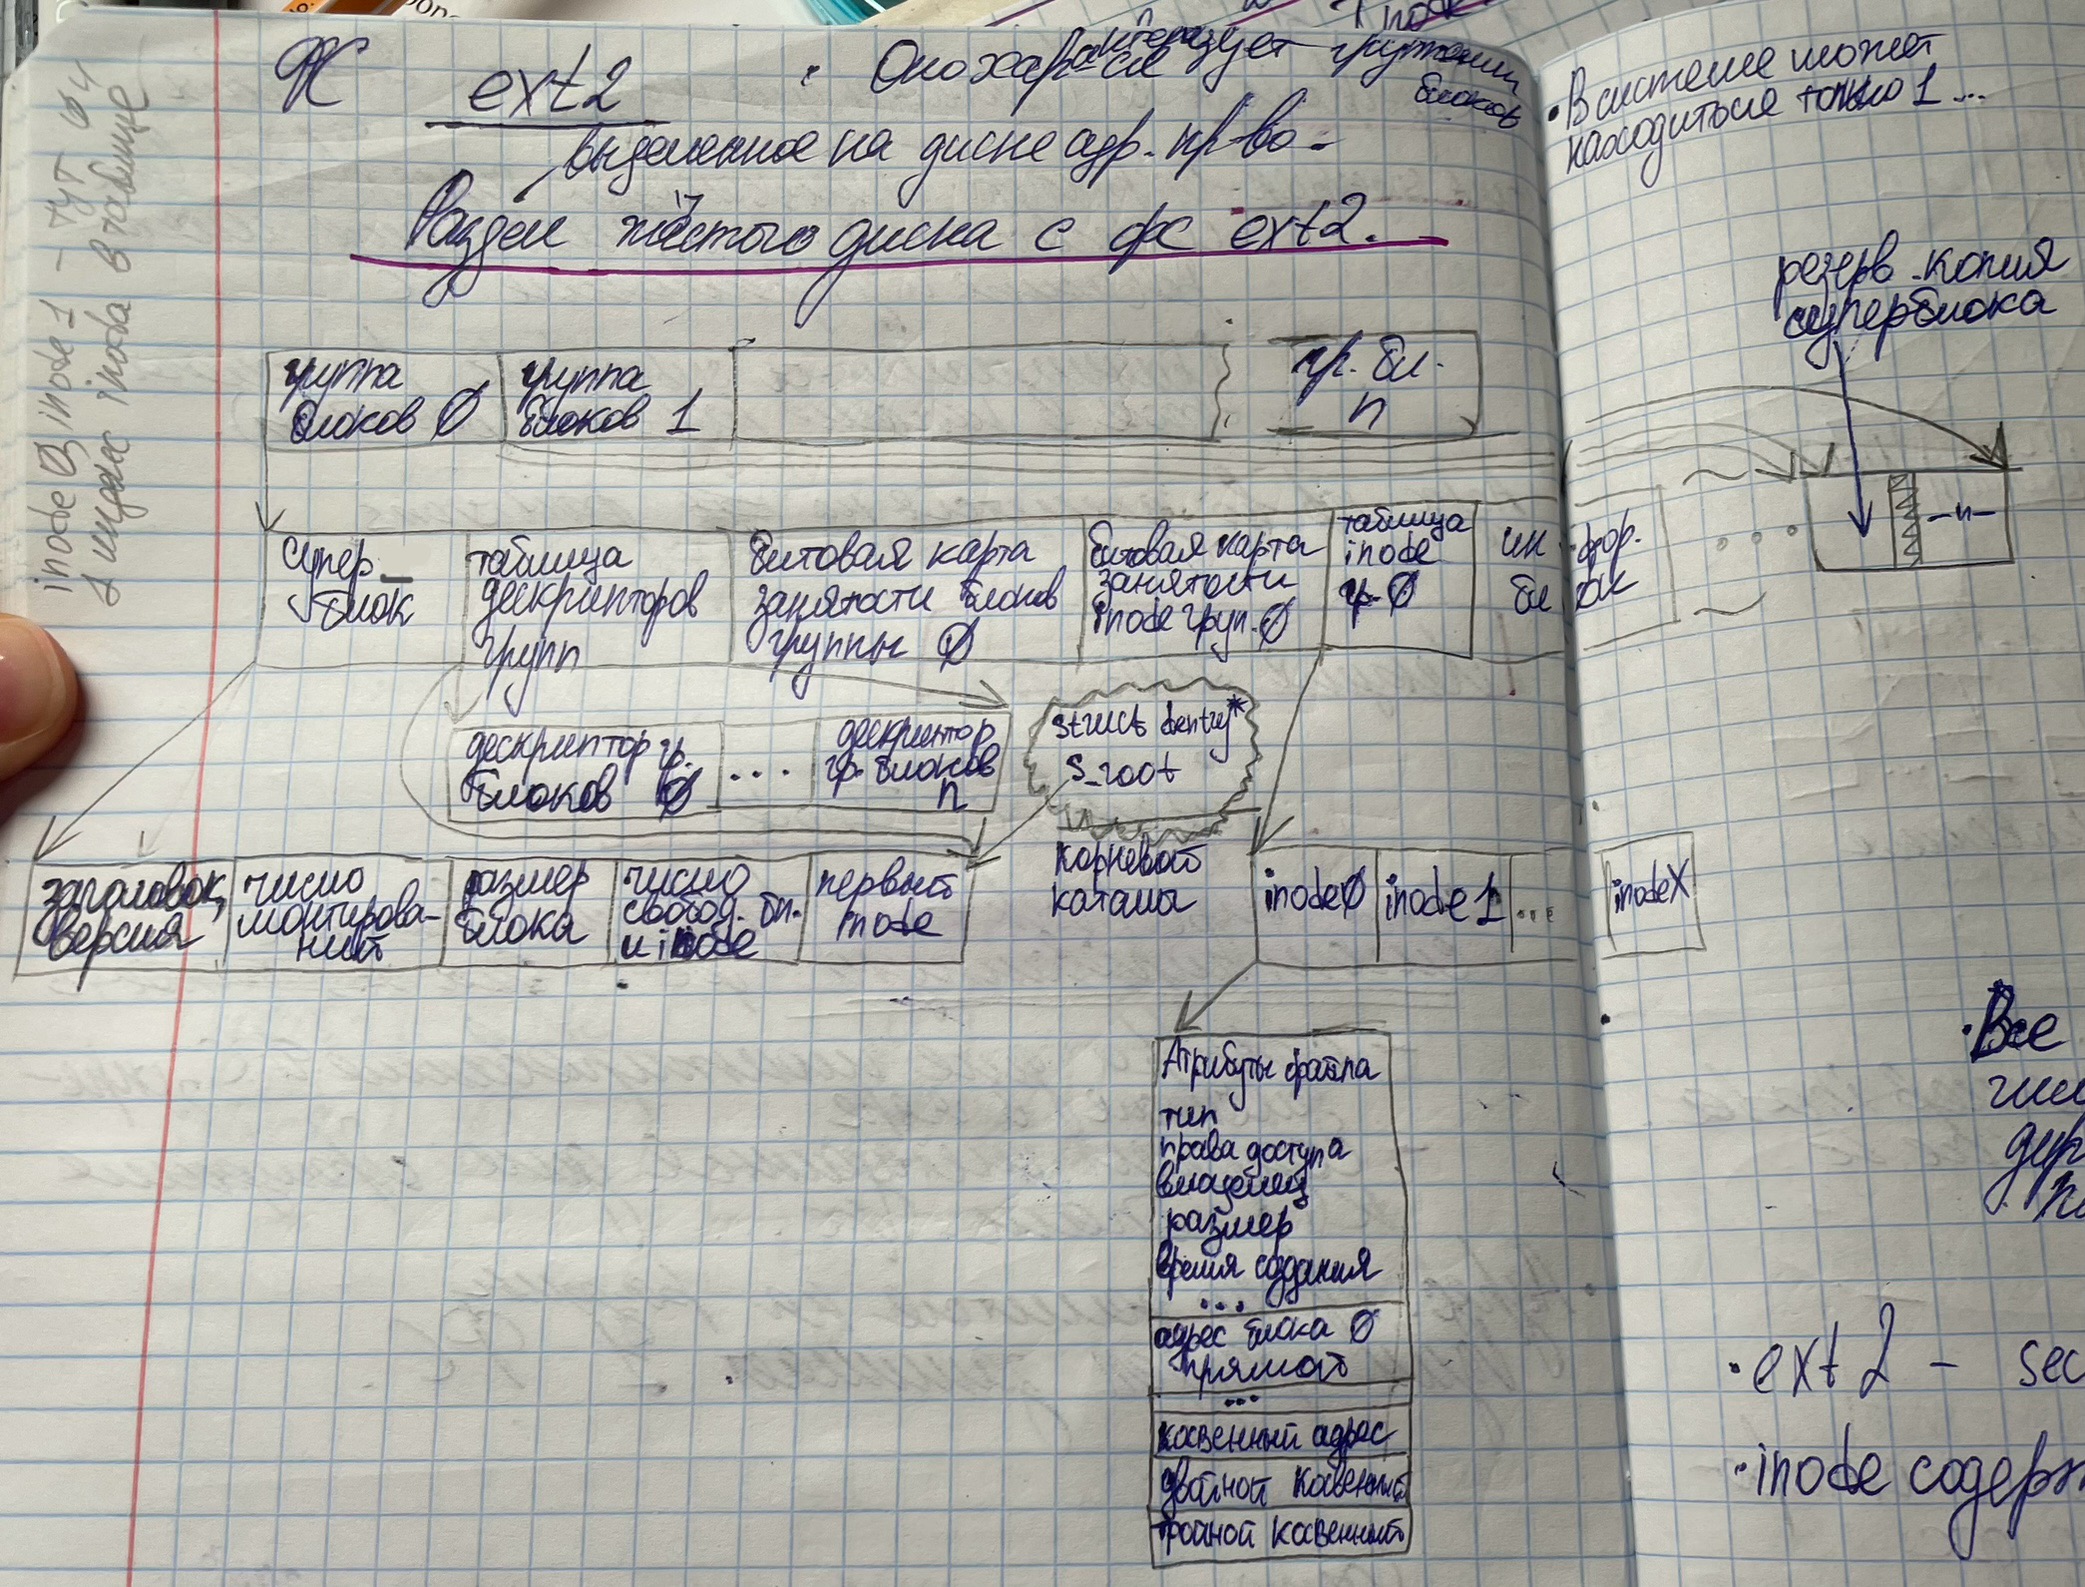 ФС
ext2
• Оно характеризуется группами
блоков
выделенное на диске адр. пр-во -
Раздел жёсткого диска с фс ext2.
inode 0, inode 1 - тут
индекс inode в таблице
группа
блоков 0
группа
блоков 1
гр. бл.
n
супер-
блок
таблица
дескрипторов
групп
битовая карта
занятости блоков
группы 0
битовая карта
занятости
inode груп. 0
таблица
inode
гр. 0
ин фор.
бл ок
дескриптор гр.
блоков 0
...
дескриптор
гр. блоков
n
struct dentry*
s_root
корневой
каталог
заголовок,
версия
число
монтирова-
ний
размер
блока
число
свобод. бл.
и inode
первый
inode
inode0
inode1
...
inodeX
Атрибуты файла
тип
права доступа
владелец
размер
время создания
...
адрес блока 0
прямой
...
косвенный адрес
двойной косвенный
тройной косвенный
• В системе может
находиться только 1 ...
резерв. копия
суперблока
...
-//-
• Все
• ext2 - sec
• inode содерж